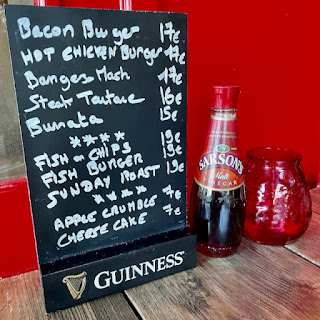 Bacon Burger 17€
HOT CHICKEN Burger 17€
Bangers Mash 17€
Steak Tartare 16€
Burrata 15€
****
FISH n CHIPS 19€
FISH BURGER
SUNDAY ROAST 19€
****
APPLE CRUMBLE 7€
CHEESE CAKE 7€
GUINNESS
SARSON'S
Malt
VINEGAR